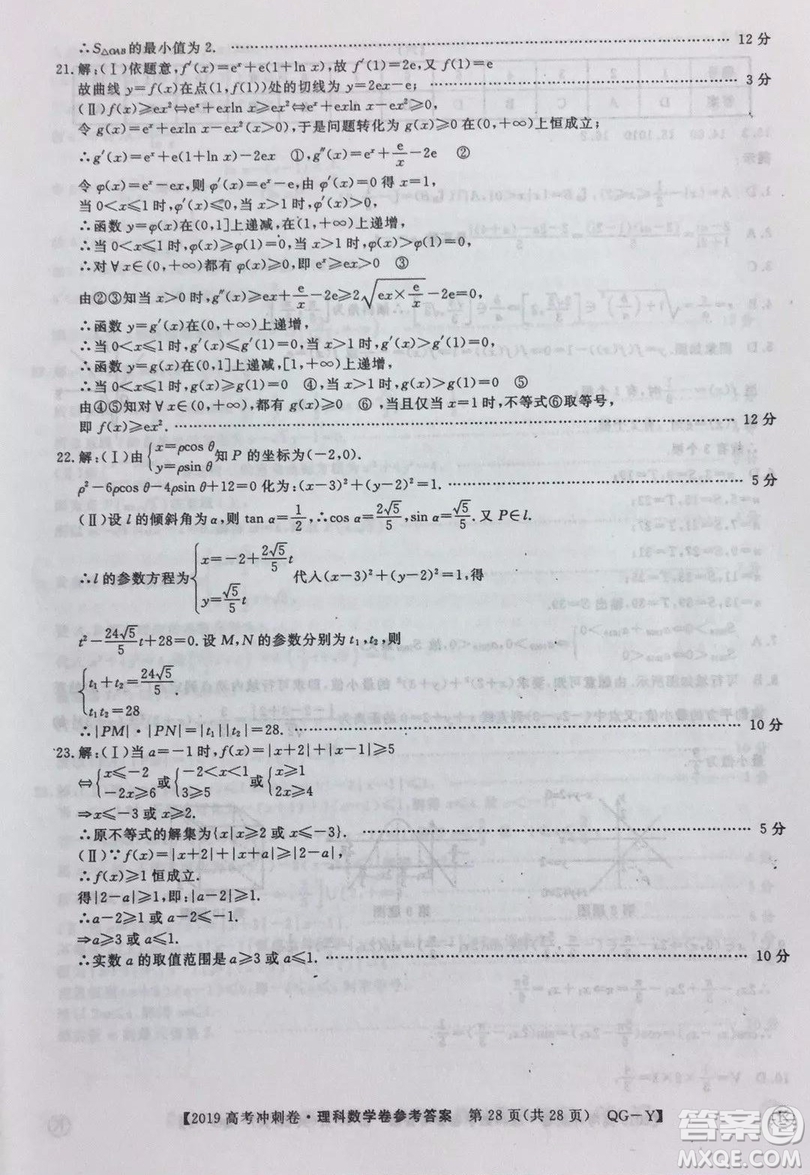 ∴S△OAB的最小值为2. 12分
21.解:(Ⅰ)依题意,f′(x)=eˣ+e(1+ln x),故f′(1)=2e,又f(1)=e
故曲线y=f(x)在点(1,f(1))处的切线为y=2ex-e; 3分
(Ⅱ)f(x)≥ex²⇔eˣ+exln x≥ex²⇔eˣ+exln x-ex²≥0,
令g(x)=eˣ+exln x-ex²(x>0),于是问题转化为g(x)≥0在(0,+∞)上恒成立;
∴g′(x)=eˣ+e(1+ln x)-2ex ①,g″(x)=eˣ+e/x-2e ②
令φ(x)=eˣ-ex,则φ′(x)=eˣ-e,可得φ′(1)=0,
当0<x≤1时,φ′(x)≤0,当x>1时,φ′(x)>0,
∴函数y=φ(x)在(0,1]上递减,在(1,+∞)上递增,
∴当0<x≤1时,φ(x)≥φ(1)=0,当x>1时,φ(x)>φ(1)=0,
∴对∀x>0,都有φ(x)≥0,即eˣ≥ex ③
由②③知当x>0时,g″(x)≥ex+e/x-2e≥2√(ex×e/x)-2e=0,
∴函数y=g′(x)在(0,+∞)上递增,
∴函数y=g(x)在(0,1]上递减,[1,+∞)上递增,
由④⑤知对∀x>0,都有g(x)≥0 ⑥,当且仅当x=1时,不等式⑥取等号,
即f(x)≥ex². 12分
22.解:(Ⅰ)由{x=ρcos θ y=ρsin θ知P的坐标为(-2,0).
ρ²-6ρcos θ-4ρsin θ+12=0化为:(x-3)²+(y-2)²=1. 5分
(Ⅱ)设l的倾斜角为α,则tan α=1/2,∴cos α=2√5/5,sin α=√5/5.又P∈l.
∴l的参数方程为{x=-2+2√5/5 t y=√5/5 t 代入(x-3)²+(y-2)²=1,得
t²-24√5/5 t+28=0.设M,N的参数分别为t₁,t₂,则
{t₁+t₂=24√5/5
t₁t₂=28
∴|PM|·|PN|=|t₁||t₂|=28. 10分
23.解:(Ⅰ)当a=-1时,f(x)=|x+2|+|x-1|≥5
⇔{x≤-2 -2x≥6或{-2<x<1 3≥5或{x≥1 2x≥4
⇒x≥2或x≤-3.
∴原不等式的解集为{x|x≥2或x≤-3}. 5分
(Ⅱ)∵f(x)=|x+2|+|x+a|≥|2-a|,
∴f(x)≥1恒成立.
得|2-a|≥1,即:|a-2|≥1.
∴a-2≥1或a-2≤-1.
⇒a≥3或a≤1.
∴实数a的取值范围是a≥3或a≤1. 10分
【2019高考冲刺卷·理科数学卷参考答案 第28页(共28页) QG-Y】
答案
MXQE.COM